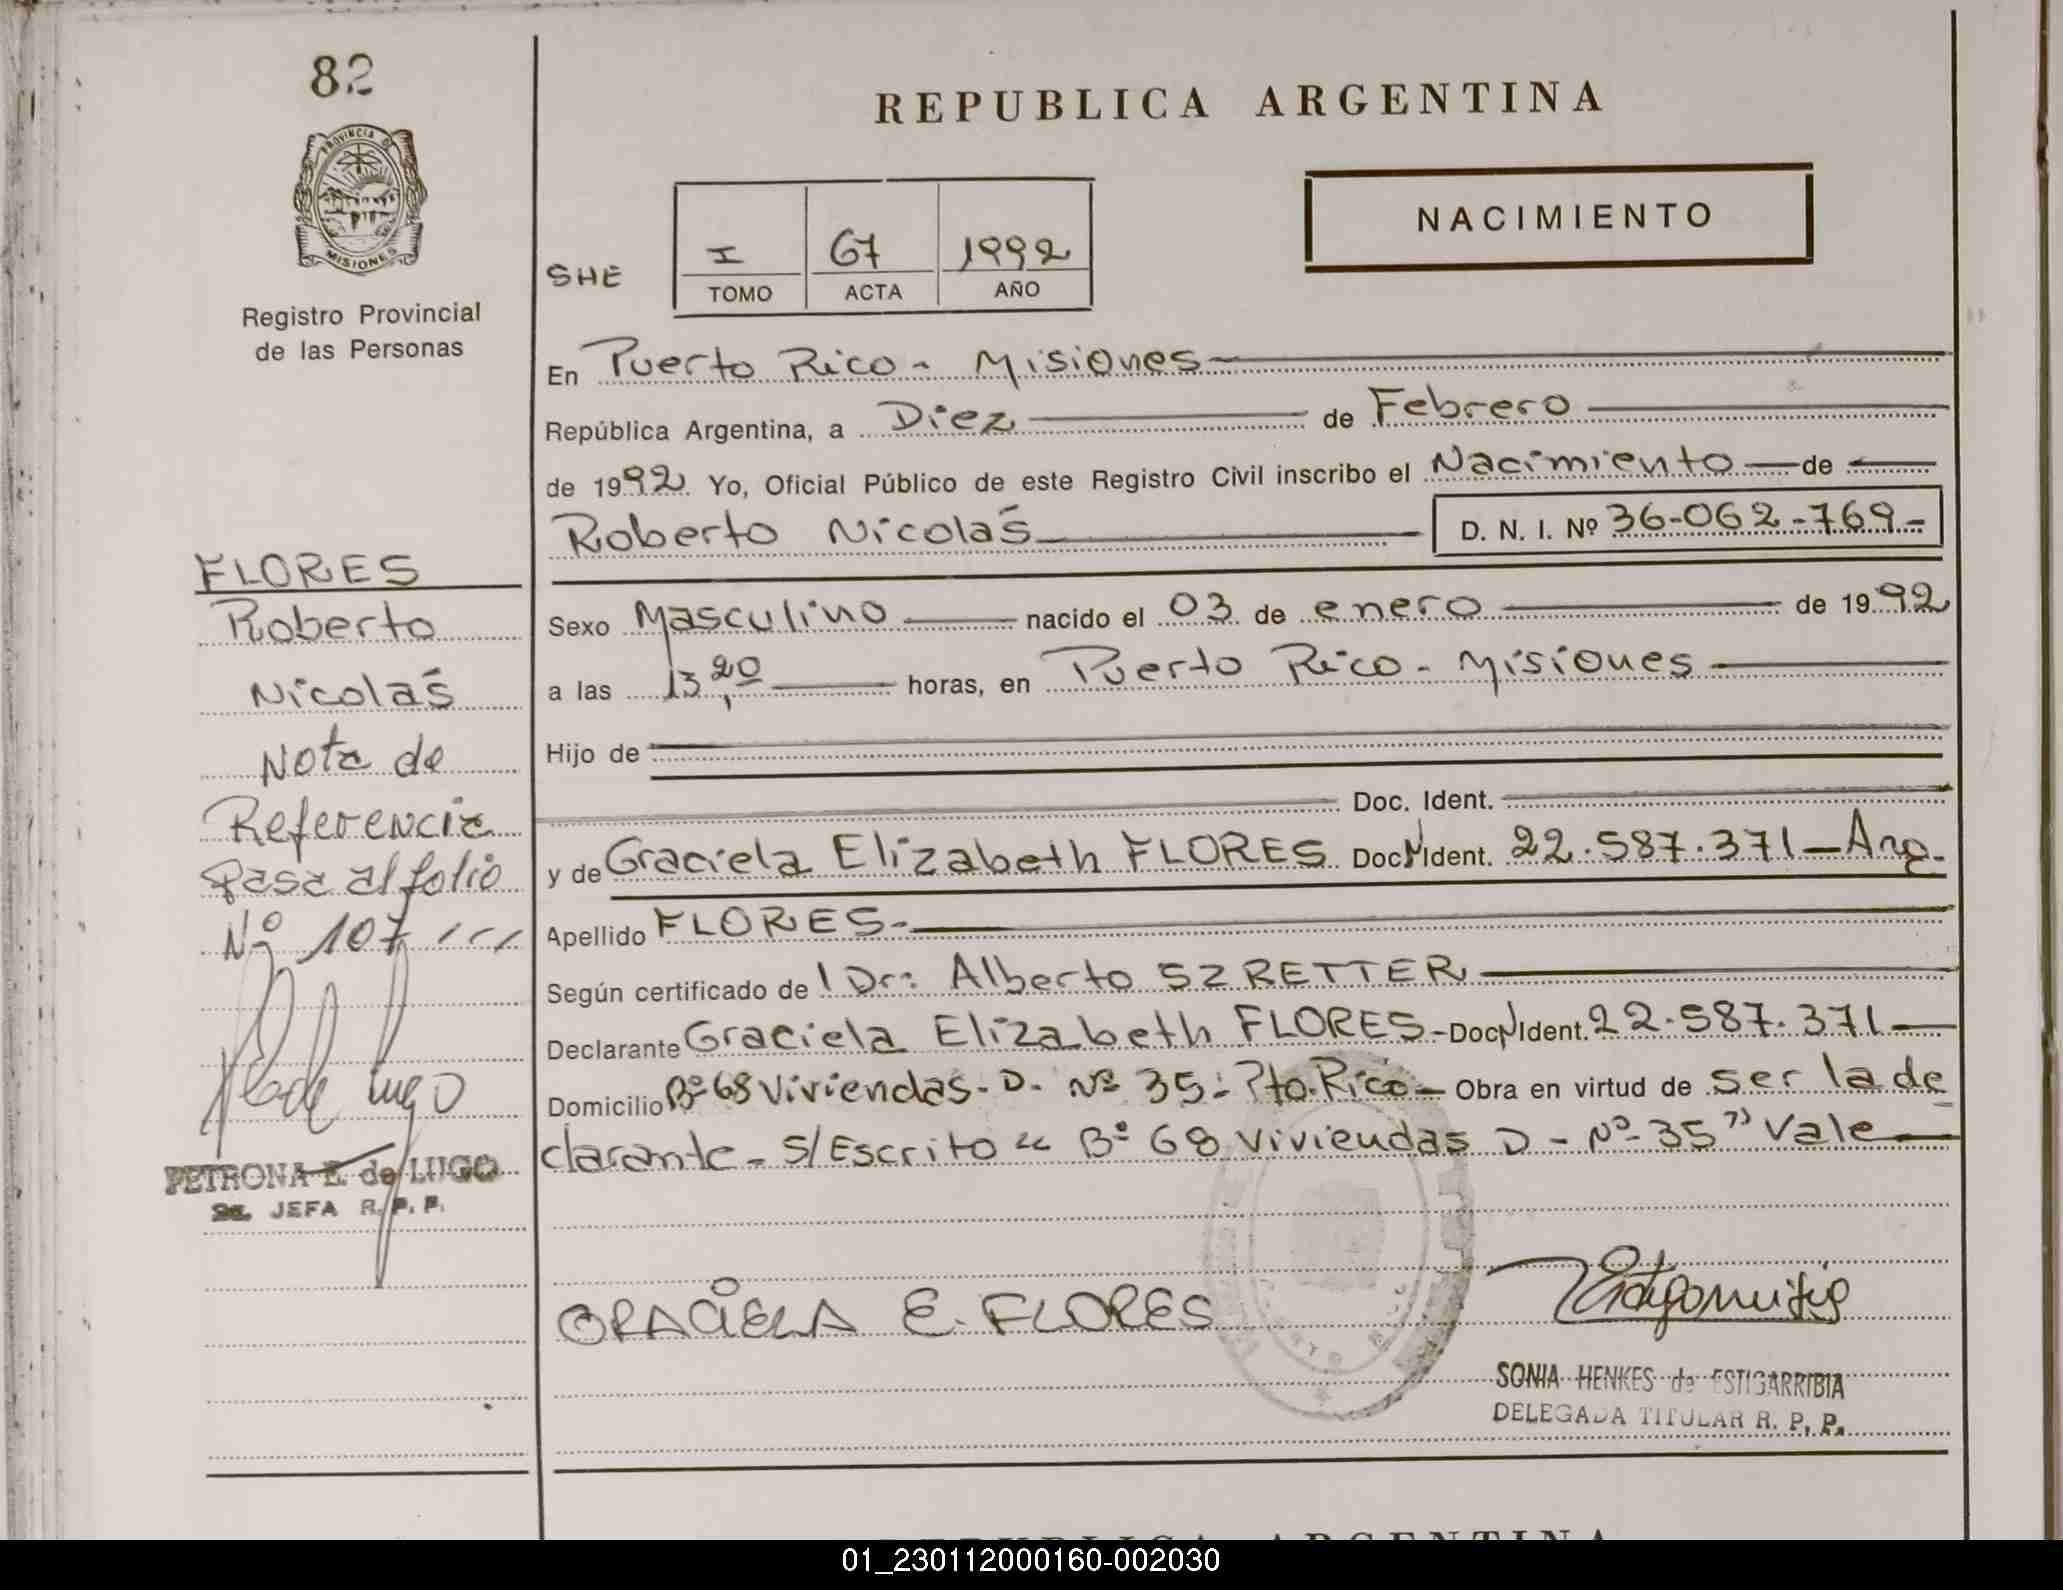 82
PROVINCIA DE
MISIONES
Registro Provincial
de las Personas
FLORES
Roberto
Nicolás
Nota de
Referencia
Pasa al folio
Nº 107
PETRONA E. de LUGO
JEFA R. P. P.
REPUBLICA ARGENTINA
NACIMIENTO
SHE
I 67 1992
TOMO ACTA AÑO
En Puerto Rico - Misiones
República Argentina, a Diez de Febrero
de 1992 Yo, Oficial Público de este Registro Civil inscribo el Nacimiento de
Roberto Nicolás D. N. I. Nº 36-062-769-
Sexo Masculino nacido el 03 de enero de 1992
a las 13,20 horas, en Puerto Rico - Misiones
Hijo de
Doc. Ident.
y de Graciela Elizabeth FLORES Doc. Ident. 22.587.371 - Arg.
Apellido FLORES-
Según certificado de l Dr: Alberto SZRETTER
Declarante Graciela Elizabeth FLORES - Doc. Ident. 22.587.371
Domicilio Bº 68 Viviendas - D - Nº 35 - Pto. Rico - Obra en virtud de ser la de
clarante - S/Escrito " Bº 68 Viviendas D - Nº 35 " Vale
GRACIELA E. FLORES
SONIA HENKES de ESTIGARRIBIA
DELEGADA TITULAR R. P. P.
REPUBLICA ARGENTINA
01_230112000160-002030